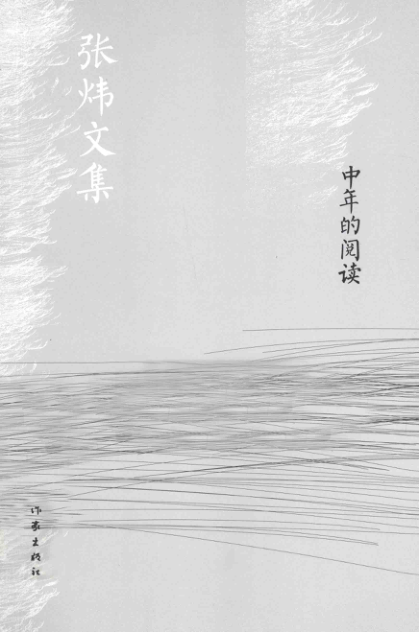 张炜文集
中年的阅读
作家出版社